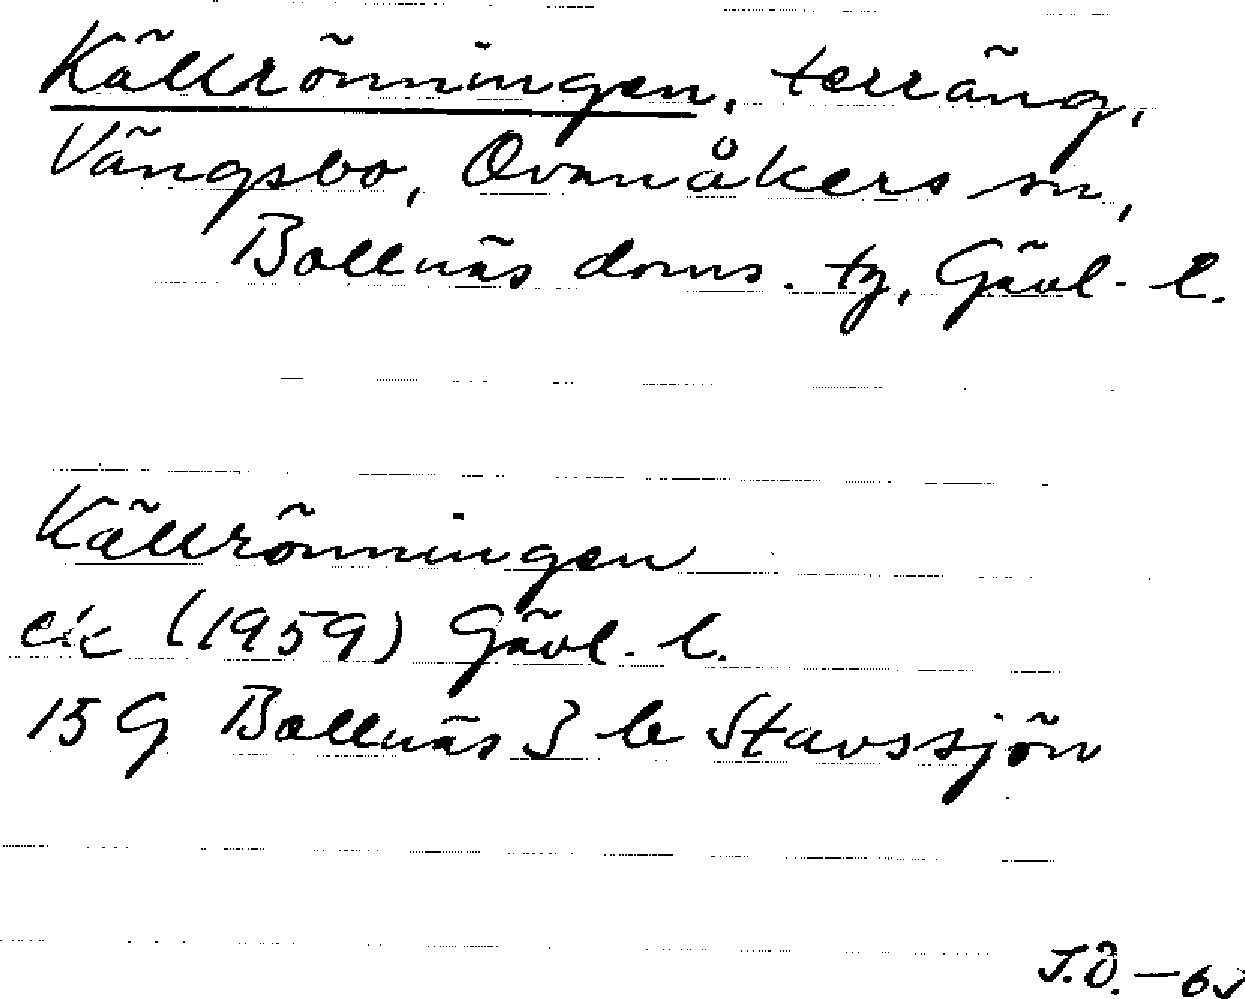 Källrönningen, terräng,
Vängsbo, Ovanåkers sn,
Bollnäs doms. tg, Gävl. l.
Källrönningen
ek (1959) Gävl. l.
15 G Bollnäs 3 b Stavssjön